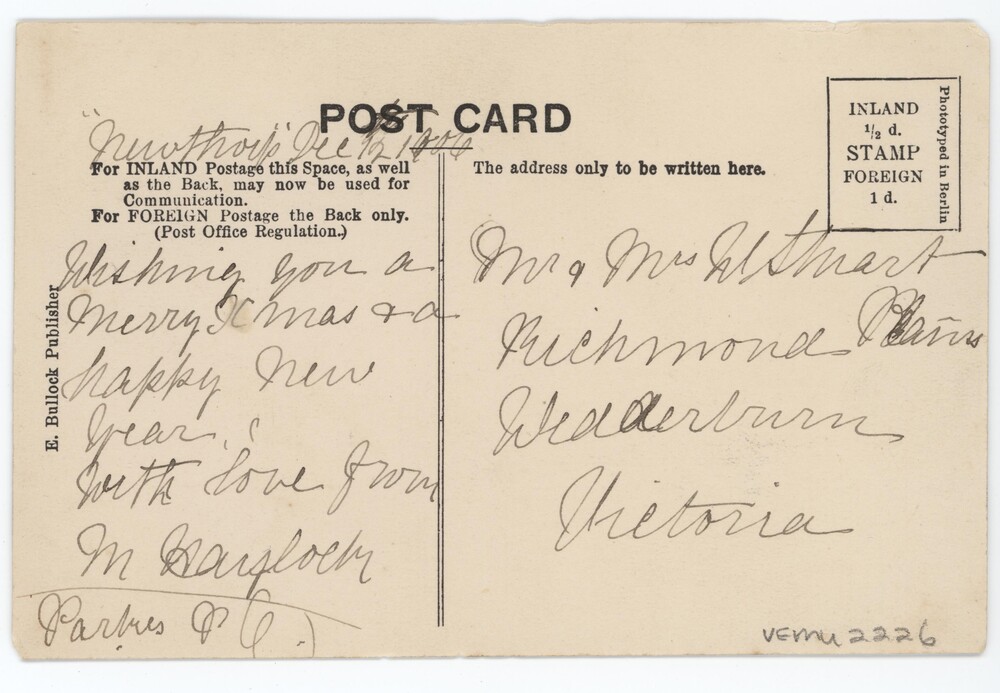 POST CARD
"Newthorp" Dec 12 1906
For INLAND Postage this Space, as well
as the Back, may now be used for
Communication.
For FOREIGN Postage the Back only.
(Post Office Regulation.)
Wishing you a
Merry Xmas & a
happy New
Year.
With love from
M Haylock
Parkes P O.
E. Bullock Publisher
The address only to be written here.
INLAND
½ d.
STAMP
FOREIGN
1 d.
Phototyped in Berlin
Mr & Mrs W Stuart
Richmond Plains
Wedderburn
Victoria
VEMU 2226